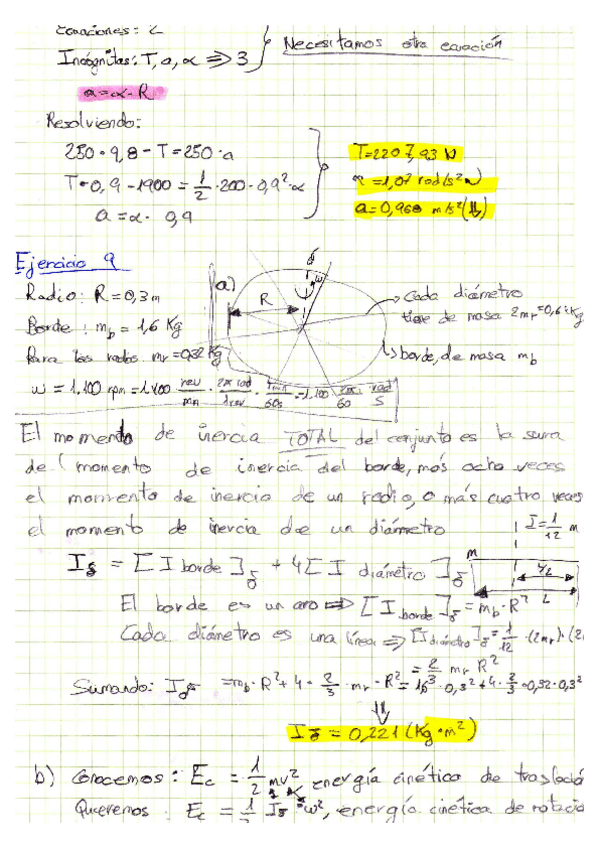 Ecuaciones: 2
Incógnitas: T, a, α ⇒ 3 } Necesitamos otra ecuación
a = α · R
Resolviendo:
250 · 9,8 - T = 250 · a
T · 0,9 - 1900 = 1/2 · 200 · 0,9² · α
a = α · 0,9
T = 2207,93 N
α = 1,07 rad/s²
a = 0,968 m/s² (⇓)
Ejercicio 9
a)
R
Radio: R = 0,3 m
Borde: m_b = 1,6 Kg
Para los radios: m_r = 0,32 Kg
Cada diámetro
tiene de masa 2m_r = 0,6 Kg
borde, de masa m_b
ω = 1.100 rpm = 1100 rev/min · 2π rad/1 rev · 1 min/60 s = 1.100 · 2π/60 rad/s
El momento de inercia TOTAL del conjunto es la suma
del momento de inercia del borde, más ocho veces
el momento de inercia de un radio, o más cuatro veces
el momento de inercia de un diámetro
I = 1/12 m
I_δ = [I borde]_δ + 4[I diámetro]_δ
m
L/2
L
El borde es un aro ⇒ [I borde]_δ = m_b · R²
Cada diámetro es una línea ⇒ [I diámetro]_δ = 1/12 · (2m_r) · (2
= 2/3 m_r R²
Sumando: I_δ = m_b · R² + 4 · 2/3 · m_r · R² = 1,6 · 0,3² + 4 · 2/3 · 0,32 · 0,3²
⇓
I_δ = 0,221 (Kg · m²)
b) Conocemos: Ec = 1/2 mv² energía cinética de traslació
Queremos: Ec = 1/2 I_δ · ω², energía cinética de rotacio